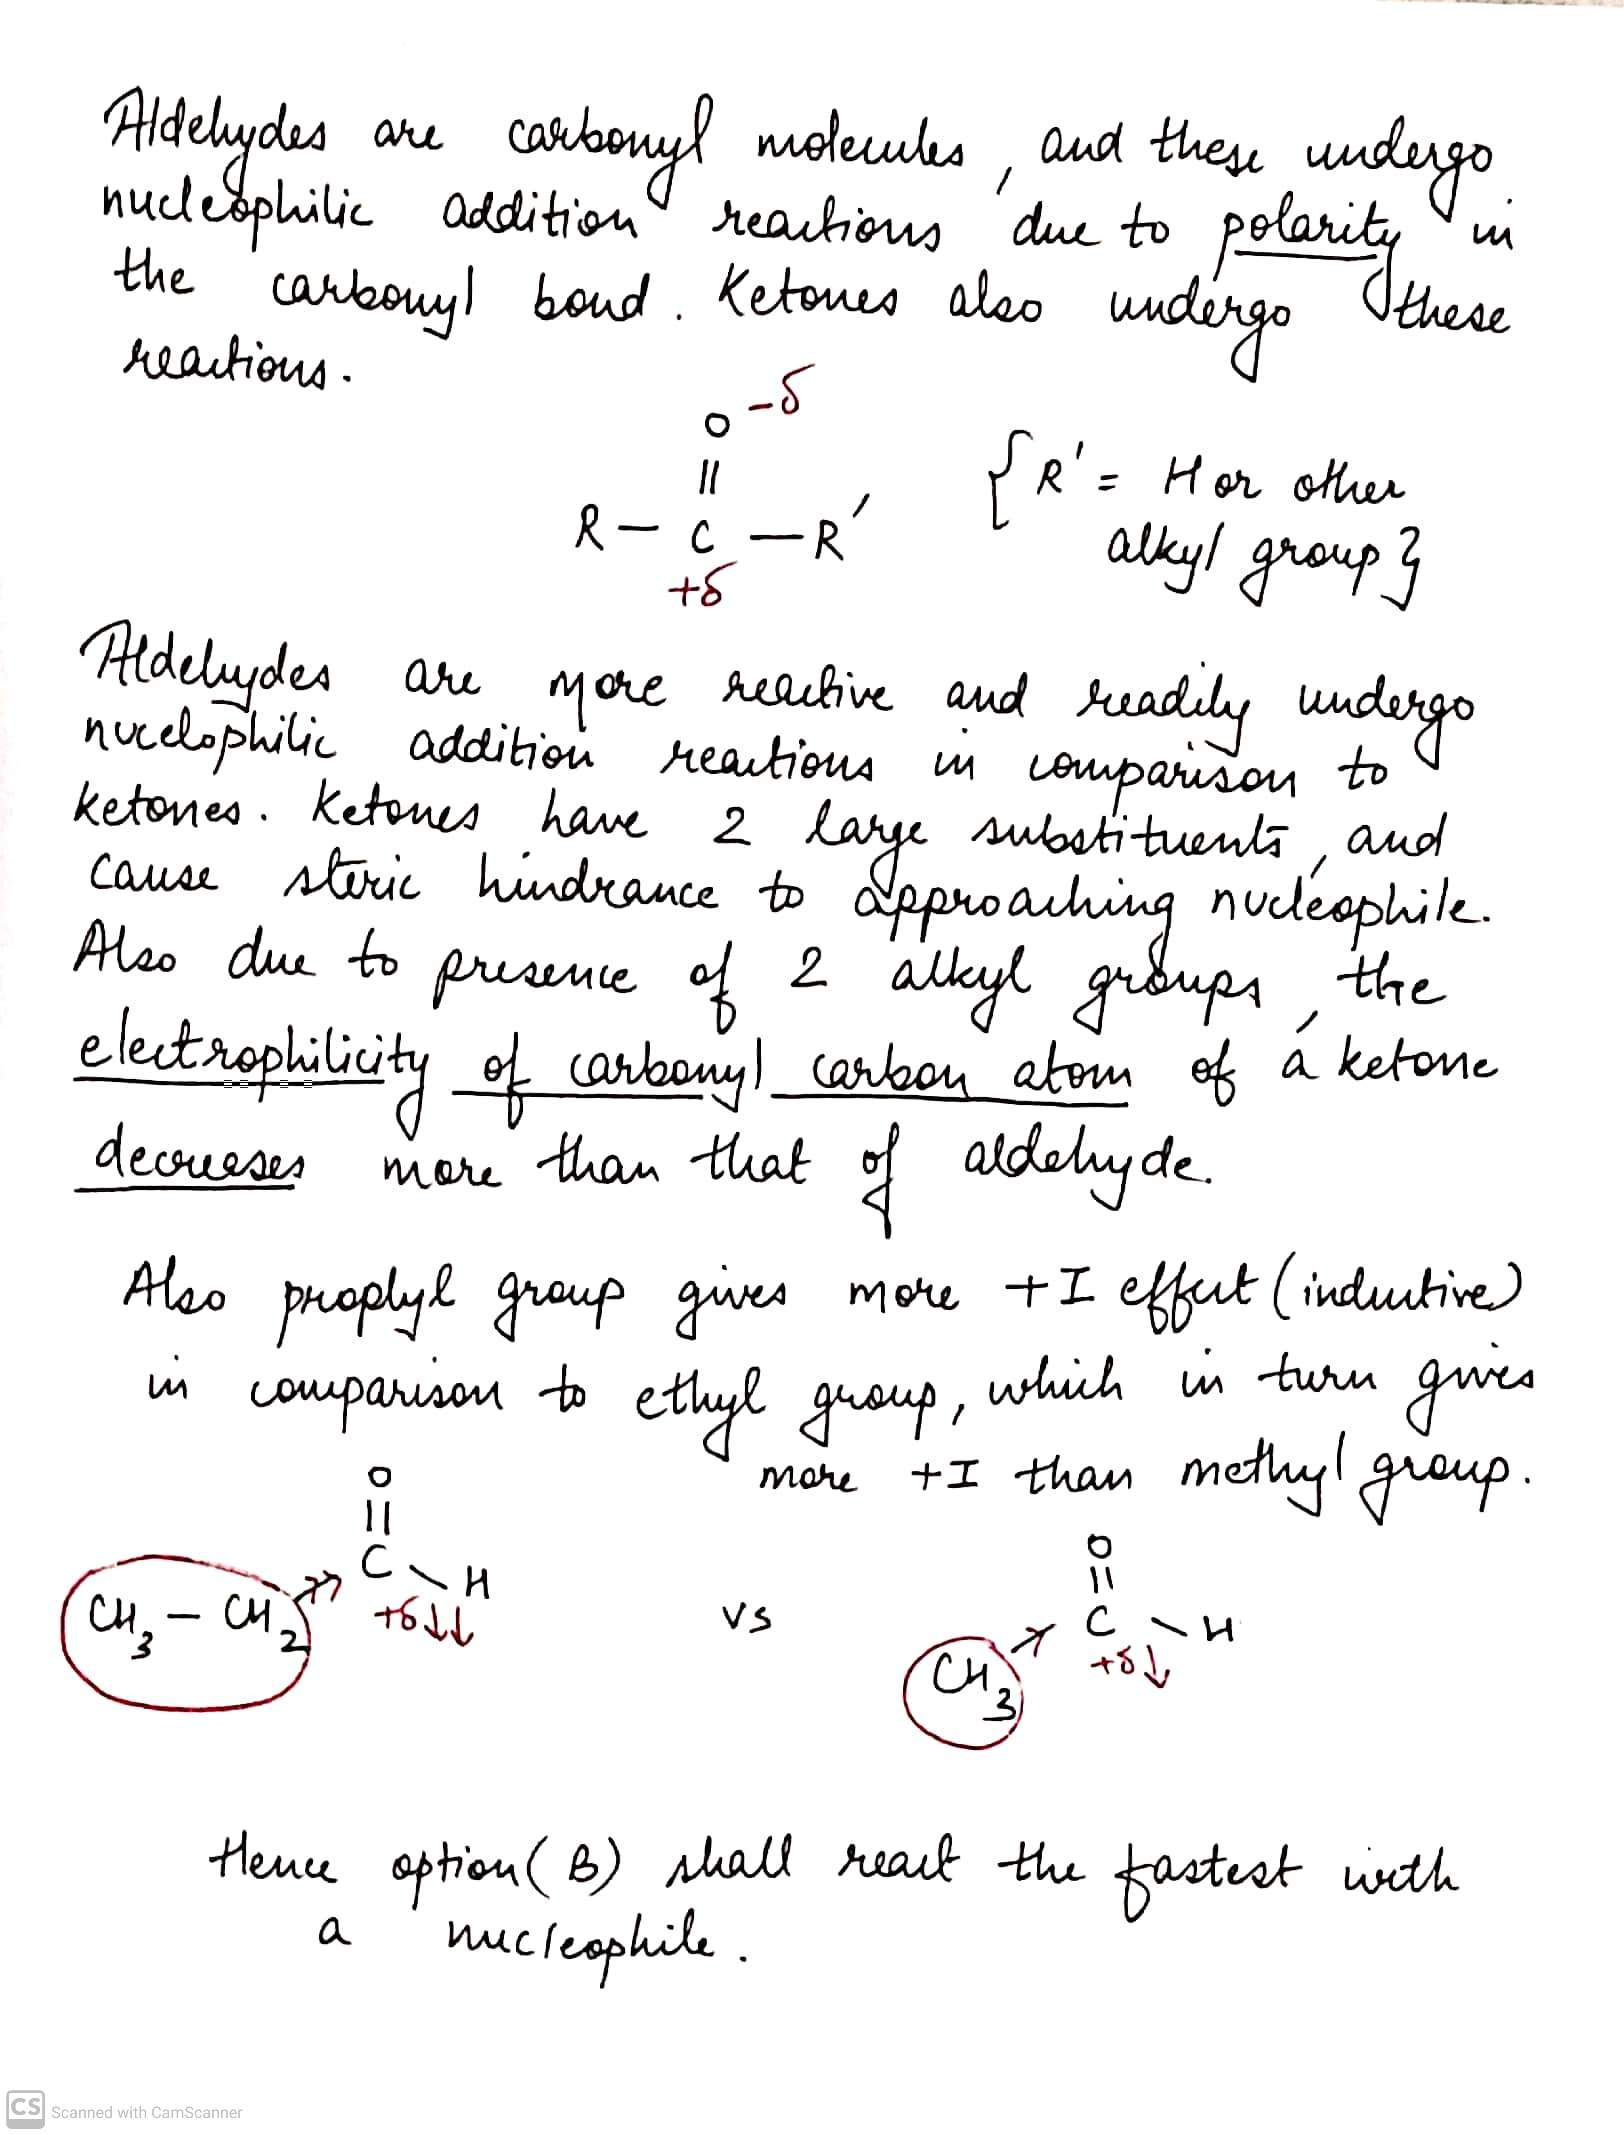 Aldehydes are carbonyl molecules, and these undergo
nucleophilic addition reactions due to polarity in
the carbonyl bond. Ketones also undergo these
reactions.
O -δ
||
R - C - R'
+δ
{R' = H or other
alkyl group}
Aldehydes are more reactive and readily undergo
nucelophilic addition reactions in comparison to
ketones. Ketones have 2 large substituents, and
cause steric hindrance to approaching nucleophile.
Also due to presence of 2 alkyl groups, the
electrophilicity of carbonyl carbon atom of a ketone
decreases more than that of aldehyde.
Also prophyl group gives more +I effect (inductive)
in comparison to ethyl group, which in turn gives
more +I than methyl group.
O
||
C
H
CH3 - CH2
+δ↓↓
vs
O
||
C
H
CH3
+δ↓
Hence option (B) shall react the fastest with
a nucleophile.
CS Scanned with CamScanner